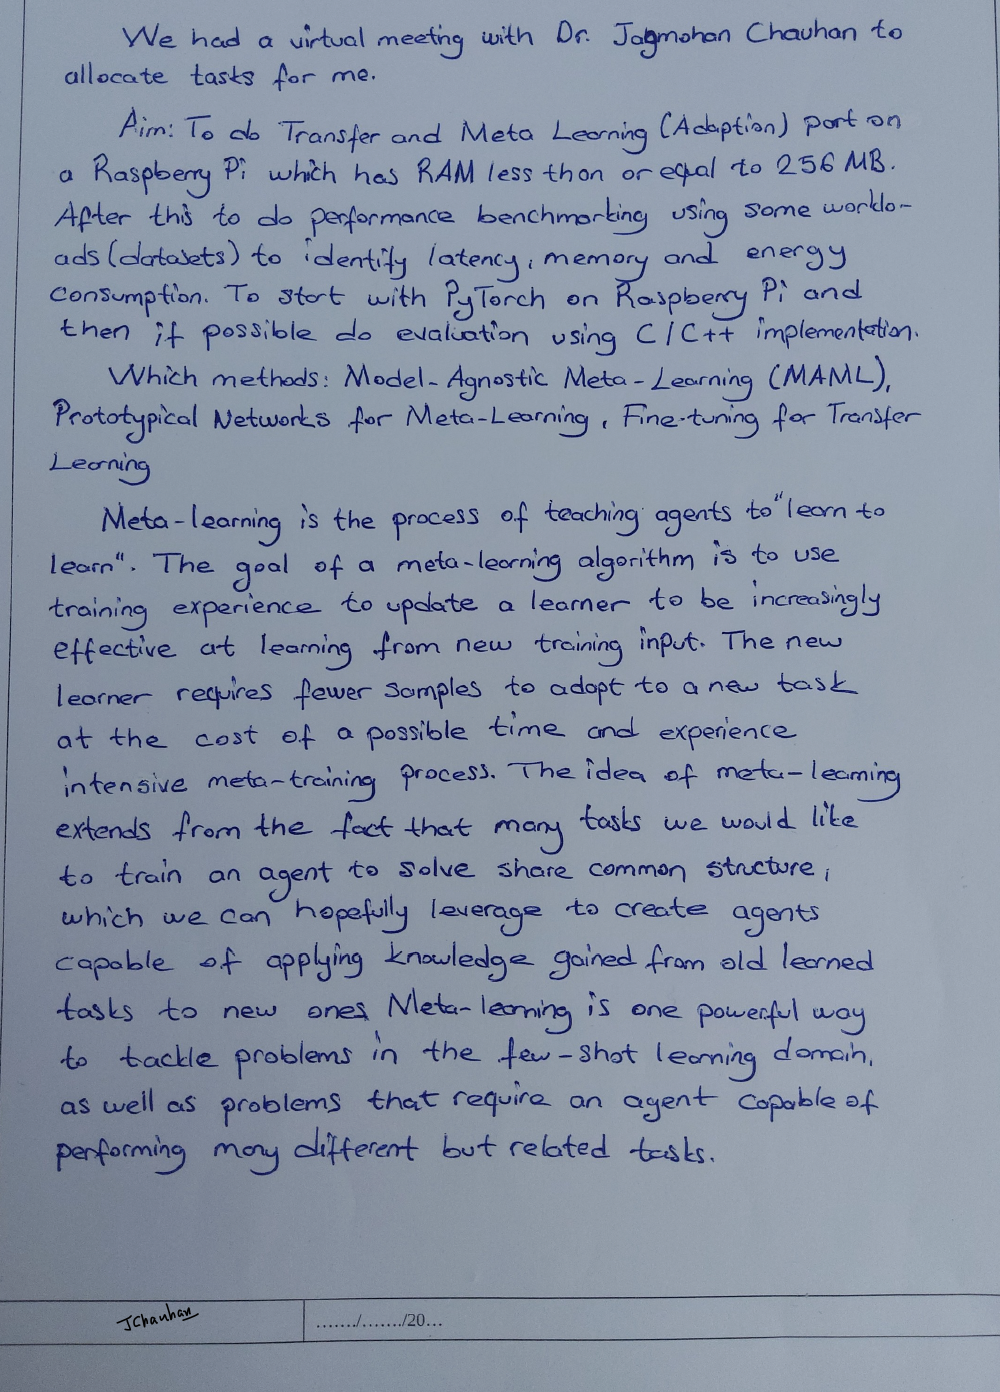 We had a virtual meeting with Dr. Jagmohan Chauhan to
allocate tasks for me.
Aim: To do Transfer and Meta Learning (Adaption) part on
a Raspberry Pi which has RAM less than or equal to 256 MB.
After this to do performance benchmarking using some worklo-
ads (datasets) to identify latency, memory and energy
consumption. To start with PyTorch on Raspberry Pi and
then if possible do evaluation using C/C++ implementation.
Which methods: Model-Agnostic Meta-Learning (MAML),
Prototypical Networks for Meta-Learning, Fine-tuning for Transfer
Learning
Meta-learning is the process of teaching agents to "learn to
learn". The goal of a meta-learning algorithm is to use
training experience to update a learner to be increasingly
effective at learning from new training input. The new
learner requires fewer samples to adapt to a new task
at the cost of a possible time and experience
intensive meta-training process. The idea of meta-learning
extends from the fact that many tasks we would like
to train an agent to solve share common structure,
which we can hopefully leverage to create agents
capable of applying knowledge gained from old learned
tasks to new ones. Meta-learning is one powerful way
to tackle problems in the few-shot learning domain,
as well as problems that require an agent capable of
performing many different but related tasks.
JChauhan
......./......./20...